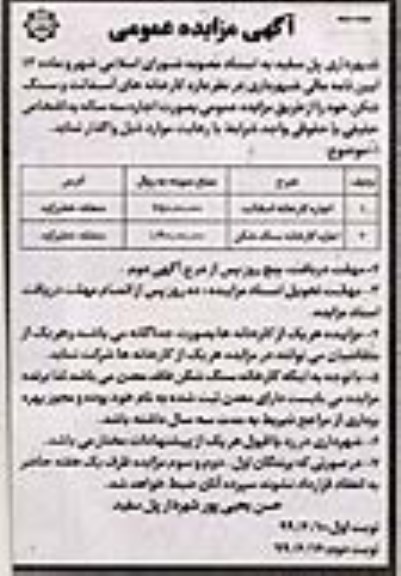 آگهی مزایده عمومی
شهرداری پل سفید به استناد مصوبه شورای اسلامی شهر و ماده ۱۳
آیین نامه مالی شهرداری در نظر دارد کارخانه های آسفالت و سنگ
شکن خود را از طریق مزایده عمومی بصورت اجاره سه ساله به اشخاص
حقیقی یا حقوقی واجد شرایط با رعایت موارد ذیل واگذار نماید.
۱-موضوع:
ردیف شرح مبلغ سپرده به ریال آدرس
۱ اجاره کارخانه آسفالت
۲ اجاره کارخانه سنگ شکن
۲- مهلت دریافت: پنج روز پس از درج آگهی دوم.
۳- مهلت تحویل اسناد مزایده: ده روز پس از اتمام مهلت دریافت
اسناد مزایده
۴- مزایده هر یک از کارخانه ها بصورت جداگانه می باشد و هر یک از
متقاضیان می توانند در مزایده هر یک از کارخانه ها شرکت نماید.
۵- با توجه به اینکه کارخانه سنگ شکن فاقد معدن می باشد لذا برنده
مزایده می بایست دارای معدن ثبت شده به نام خود بوده و مجوز بهره
برداری از مراجع ذیربط به مدت سه سال داشته باشد.
۶- شهرداری در رد یا قبول هر یک از پیشنهادات مختار می باشد.
۷- در صورتی که برندگان اول، دوم و سوم مزایده ظرف یک هفته حاضر
به انعقاد قرارداد نشوند سپرده آنان ضبط خواهد شد.
حسن یحیی پور شهردار پل سفید
نوبت اول: ۹۹/۶/۱۰
نوبت دوم: ۹۹/۶/۱۶